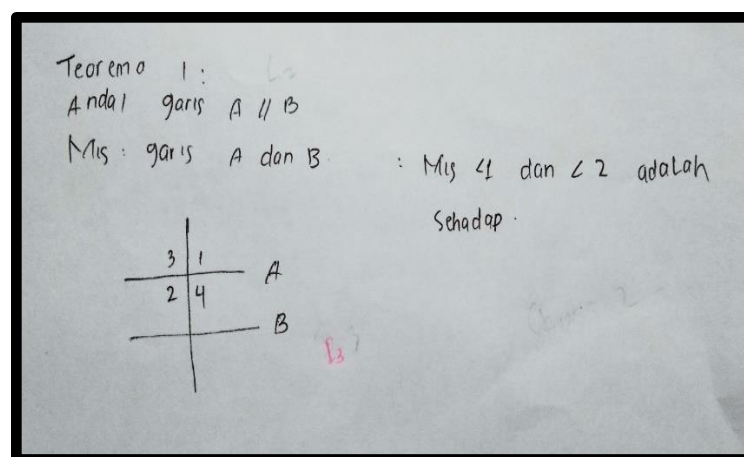 Teorema 1 :
Andai garis A // B
Mis : garis A dan B : Mis <1 dan < 2 adalah
Sehadap .
3 1
A
2 4
B